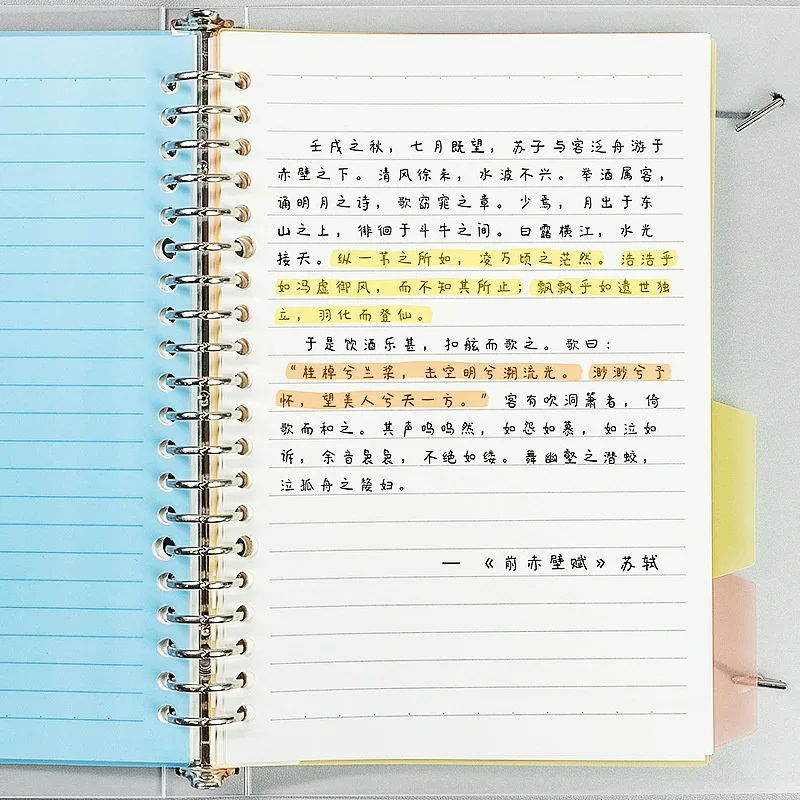 壬戌之秋，七月既望，苏子与客泛舟游于
赤壁之下。清风徐来，水波不兴。举酒属客，
诵明月之诗，歌窈窕之章。少焉，月出于东
山之上，徘徊于斗牛之间。白露横江，水光
接天。纵一苇之所如，凌万顷之茫然。浩浩乎
如冯虚御风，而不知其所止；飘飘乎如遗世独
立，羽化而登仙。
于是饮酒乐甚，扣舷而歌之。歌曰：
“桂棹兮兰桨，击空明兮溯流光。渺渺兮予
怀，望美人兮天一方。”客有吹洞萧者，倚
歌而和之。其声呜呜然，如怨如慕，如泣如
诉，余音袅袅，不绝如缕。舞幽壑之潜蛟，
泣孤舟之嫠妇。
— 《前赤壁赋》苏轼